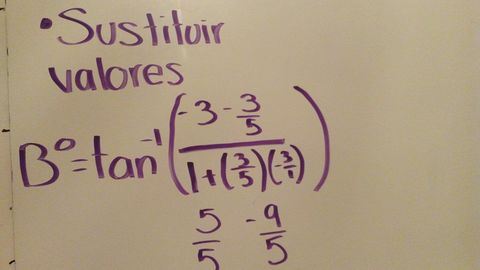 • Sustituir
valores
B° = tan⁻¹ ( -3 - 3/5 / 1 + (3/5)(3/1) )
5/5 - 9/5